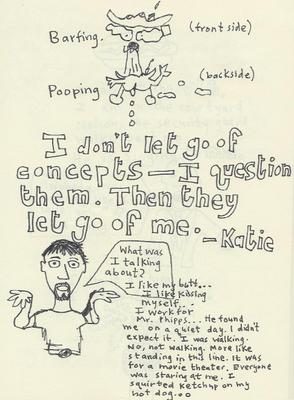 Barfing. (front side)
Pooping (backside)
I don't let go of
concepts—I question
them. Then they
let go of me. —Katie
What was
I talking
about?
I like my butt...
I like kissing
myself...
I work for
Mr. Phipps... He found
me on a quiet day. I didn't
expect it. I was walking.
No, not walking. More like
standing in this line. It was
for a movie theater. Everyone
was staring at me. I
squirted ketchup on my
hot dog...